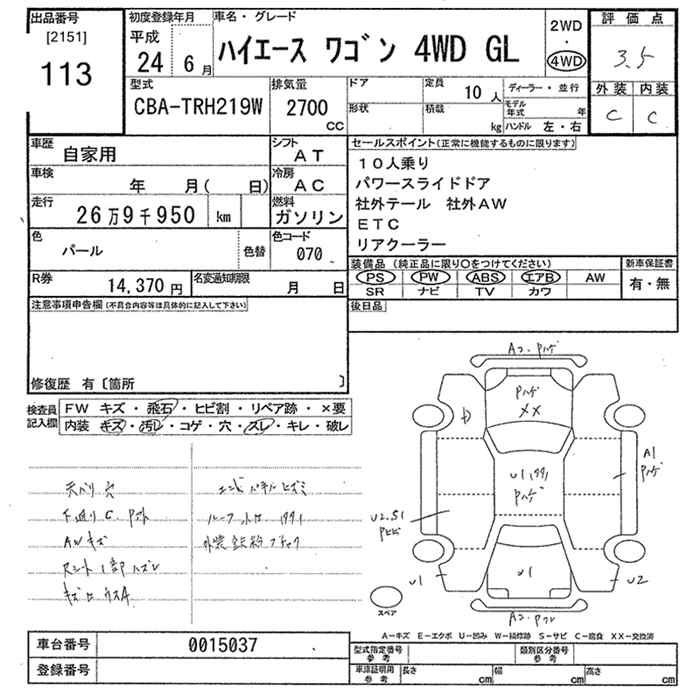 出品番号 初度登録年月 車名・グレード 評価点
[2151] 平成 2WD
113 24 6月 ハイエース ワゴン 4WD GL ・ 3.5
4WD
型式 排気量 ドア 定員 10人 ディーラー・並行 外装 内装
CBA-TRH219W 2700cc 形状 積載 kg モデル年式 年 C C
ハンドル 左・右
車歴 自家用 シフト AT セールスポイント(正常に機能するものに限ります)
車検 年 月( 日) 冷房 AC 10人乗り
パワースライドドア
走行 26万9千950 km 燃料 ガソリン 社外テール 社外AW
ETC
色 パール 色替 色コード 070 リアクーラー
装備品(純正品に限り○をつけてください) 新車保証書
R券 14,370円 名変通知期限 月 日 PS PW ABS エアB AW 有・無
SR ナビ TV カワ
注意事項申告欄(不具合内容等は具体的に記入して下さい) 後日品
修復歴 有〔箇所 〕
検査員記入欄 FW キズ・飛石・ヒビ割・リペア跡・×要
内装 キズ・汚レ・コゲ・穴・スレ・キレ・破レ
Aコ・Pハゲ
Pハゲ
XX
A1
Pハゲ
U1
Pハゲ
U2.S1
Pヒビ
U1
U1
U2
スペア
天ベリ 穴
下廻りC
AWキズ
シート1部
A-キズ E-エクボ U-凹み W-補修跡 S-サビ C-腐食 XX-交換済
車台番号 0015037 型式指定番号 参考 類別区分番号 参考
登録番号 車庫証明用 参考 長さ cm 幅 cm 高さ cm